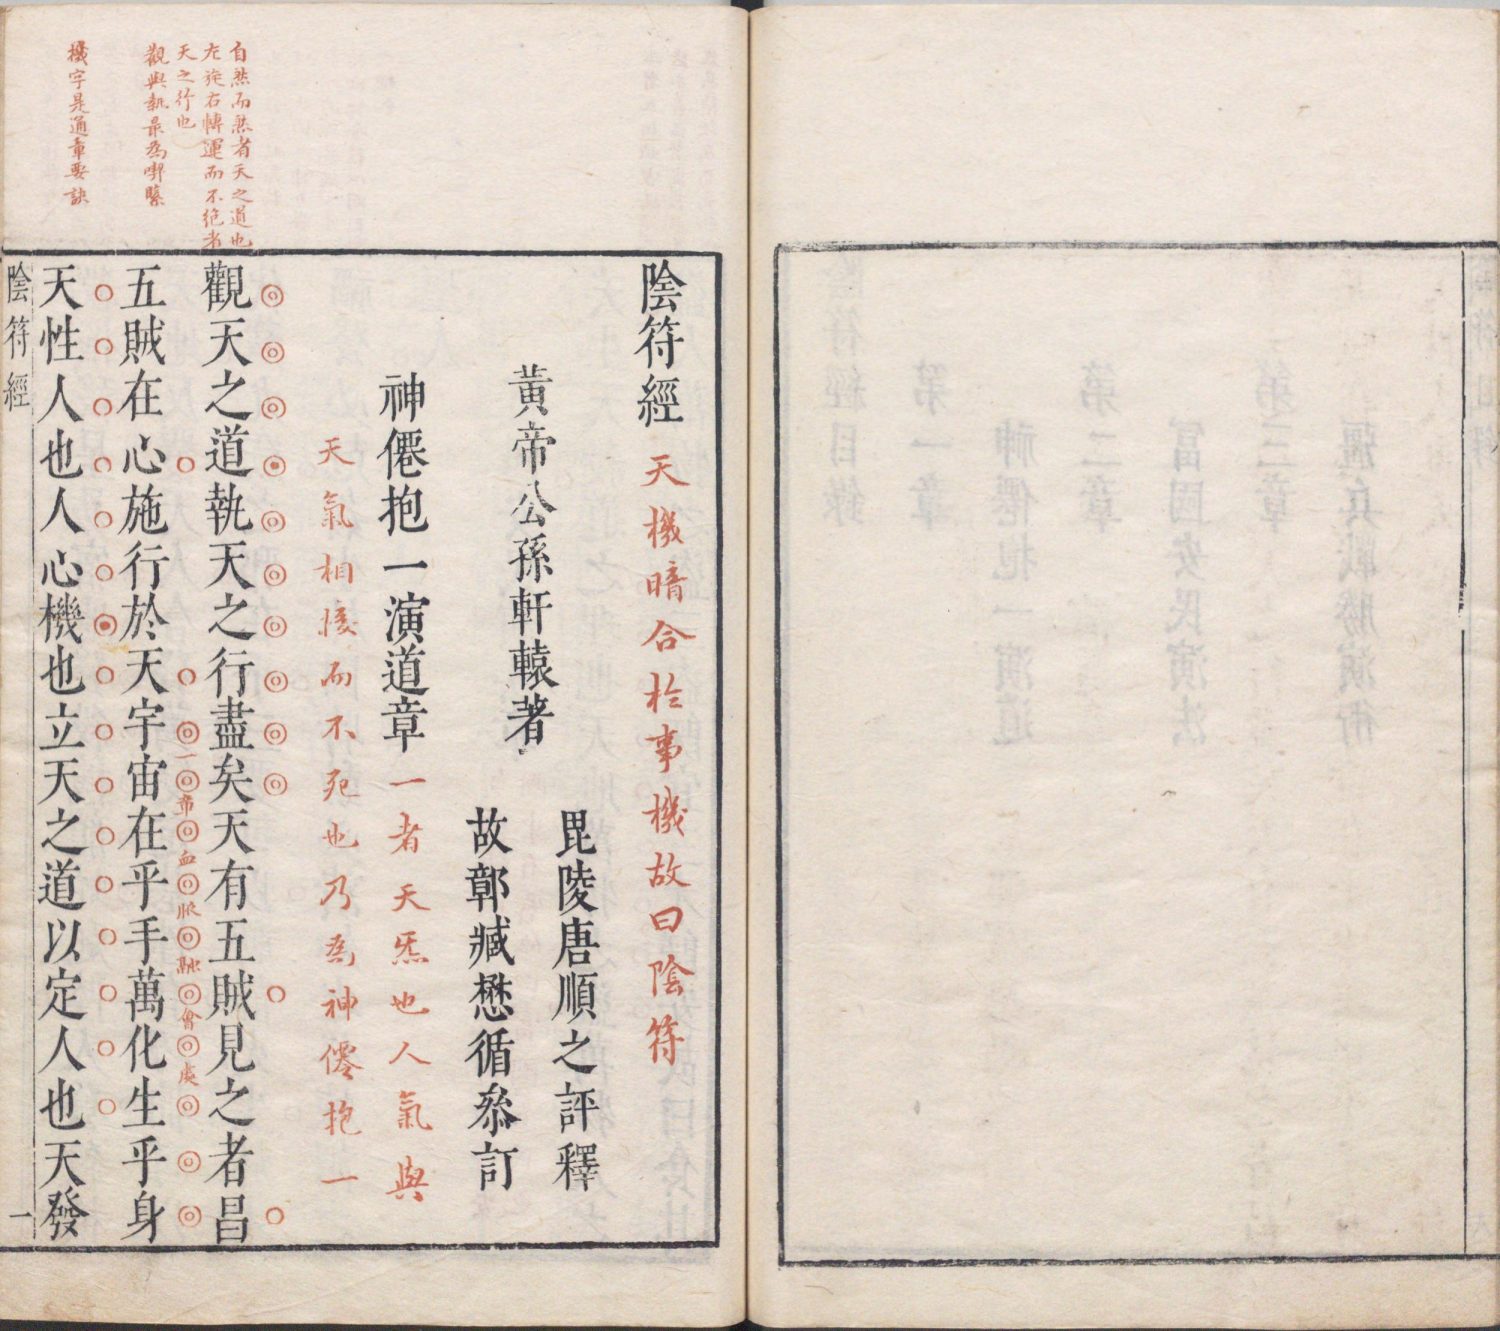 陰符經天機暗合於事機故曰陰符
毘陵唐順之評釋
黃帝公孫軒轅著
故鄣臧懋循叅訂
神僊抱一演道章一者天炁也人氣與
天氣相接而不死也乃為神僊抱一
觀天之道執天之行盡矣天有五賊見之者昌
一帝血脈融會處
五賊在心施行於天宇宙在乎手萬化生乎身
天性人也人心機也立天之道以定人也天發
陰符經
一
自然而然者天之道也
左旋右轉運而不絶者
天之行也
觀與執最為喫緊
機字是通章要訣